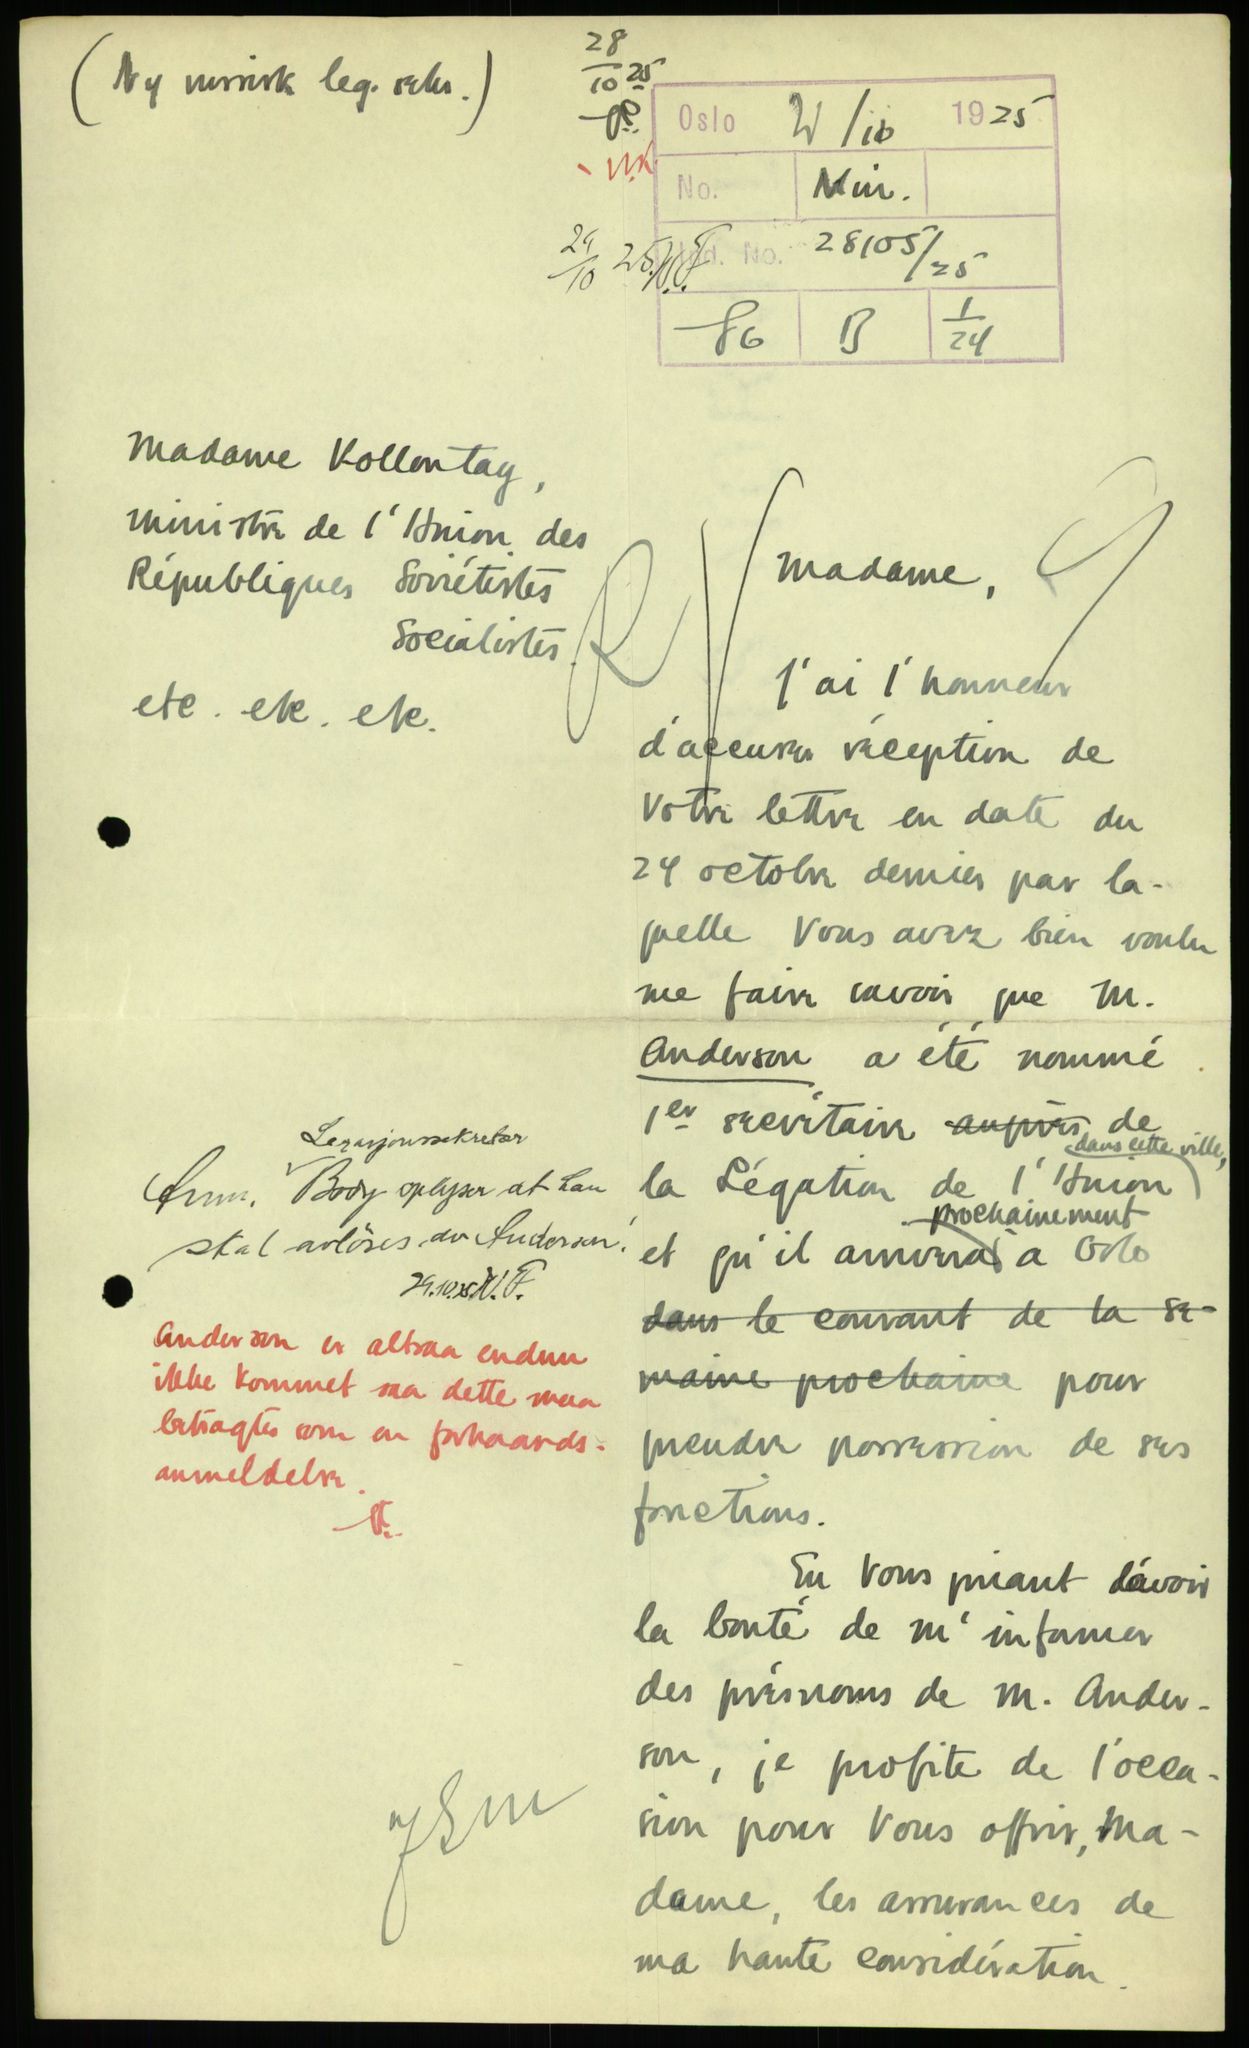 (Ny russisk leg. sekr.)
28
10 25
Oslo /10 1925
No. Min.
29
10 25. N.F.
Ind. No. 28105/25
86 B 1
24
Madame Kollontay,
Ministre de l'Union des
Républiques Soviétistes
Socialistes
etc. etc. etc.
Madame,
J'ai l'honneur
d'accuser réception de
Votre lettre en date du
24 octobre dernier par la-
quelle Vous avez bien voulu
me faire savoir que M.
Anderson a été nommé
1er secrétaire auprès de
dans cette ville,
la Légation de l'Union
prochainement
et qu'il arrivera à Oslo
dans le courant de la se-
maine prochaine pour
prendre possession de ses
fonctions.
En Vous priant d'avoir
la bonté de m'informer
des prénoms de M. Ander-
son, je profite de l'occa-
sion pour Vous offrir, Ma-
dame, les assurances de
ma haute considération.
Legasjonssekretær
Anm. Body oplyser at han
skal avløses av Anderson.
29.10.25. N.F.
Anderson er altsaa endnu
ikke kommet saa dette maa
betragtes som en forhaands-
anmeldelse.